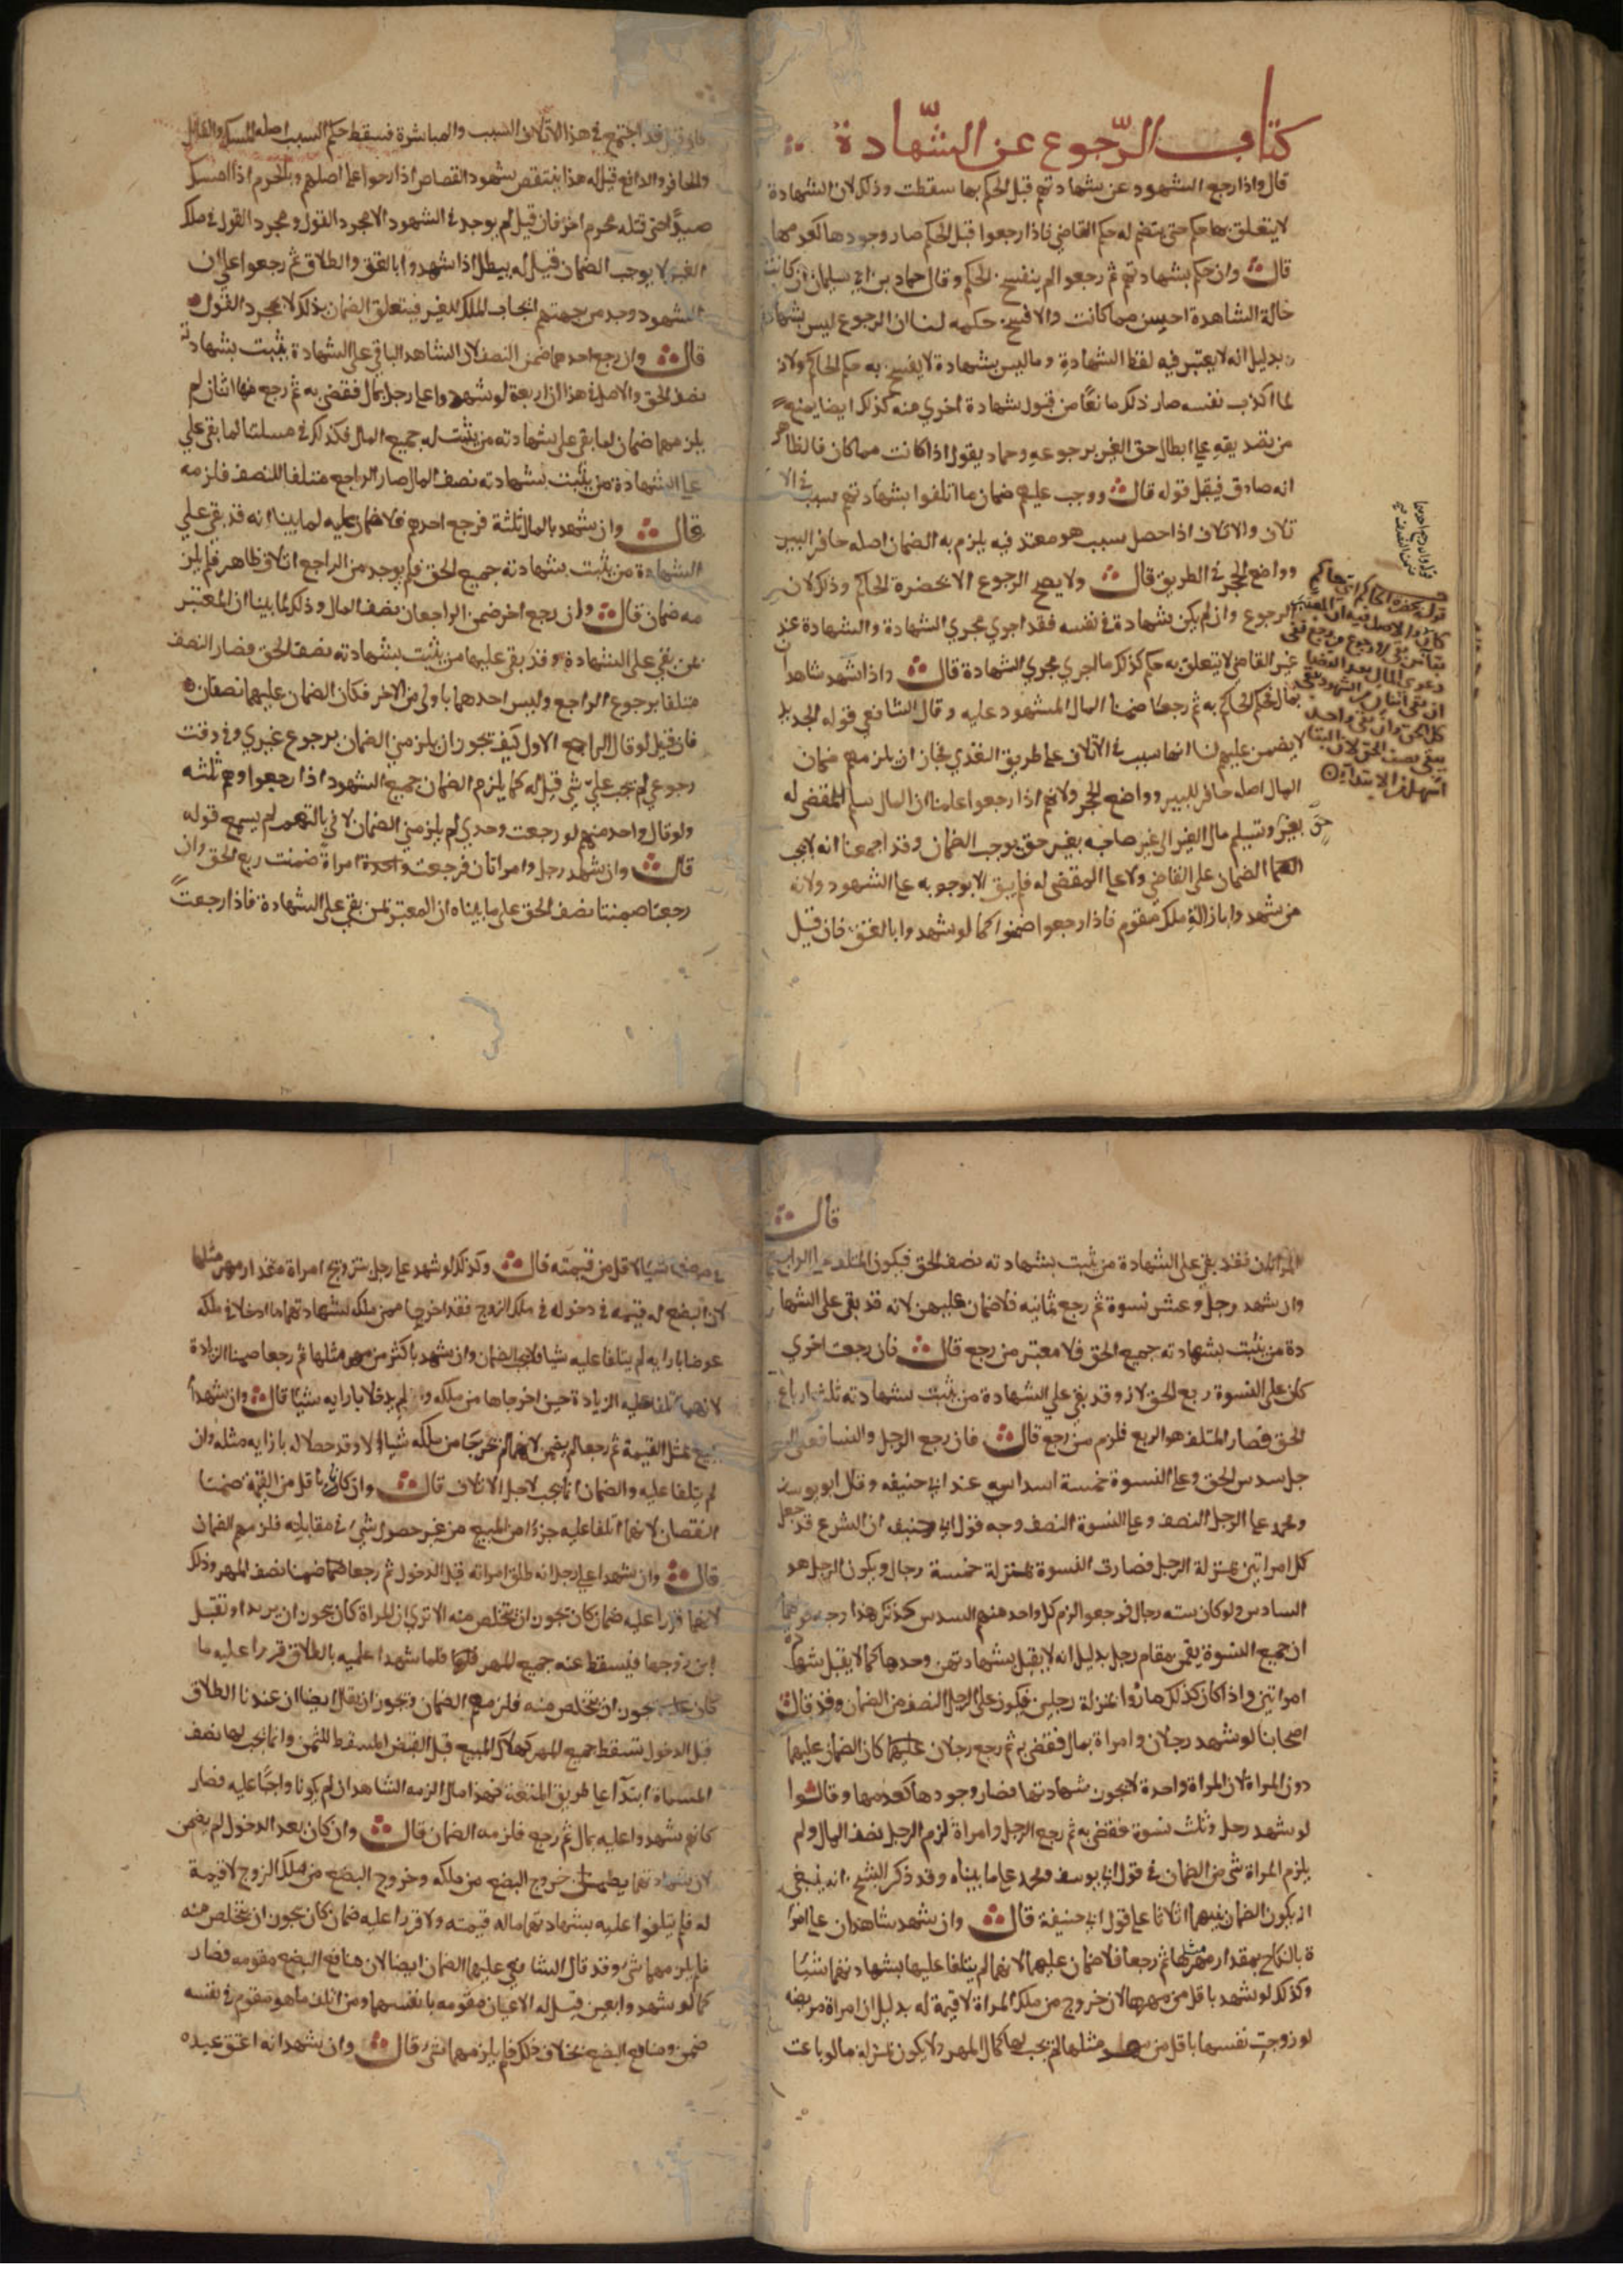 كتاب الرّجوع عن الشّهادة
قال واذا رجع الشهود عن شهادتهم قبل الحكم بها سقطت وذلك لان الشهادة
لا يتعلق بها حكم حتى ينضم له حكم القاضي فاذا رجعوا قبل الحكم صار وجودها كعدمها
قال وان حكم بشهادتهم ثم رجعوا لم ينفسخ الحكم وقال حماد بن ابي سليمان ان كانت
حالة الشاهدة احسن مما كانت والا فسخ حكمه لنا ان الرجوع ليس بشهادة
بدليل انه لا يعتبر فيه لفظ الشهادة وما ليس بشهادة لا يفسخ به حكم الحاكم ولان
لما اكذب نفسه صار ذلك مانعًا من قبول شهادة اخري منه كذلك ايضا يمنع
من تصديقه علي ابطال حق الغير برجوعه وحماد يقول اذا كانت مما كان فالظاهر
انه صادق فيقبل قوله قال ووجب عليهم ضمان ما اتلفوا بشهادتهم سبب في الا
تلاف والاتلاف اذا حصل سبب هو معتد فيه يلزم به الضمان اصله حافر البير
وواضع الحجر في الطريق قال ولا يصح الرجوع الا بحضرة الحاكم وذلك لان
الرجوع وان لم يكن شهادة في نفسه فقد اجري مجري الشهادة والشهادة عند
غير القاضي لا يتعلق به حكم كذلك ما اجري مجري الشهادة قال واذا شهد شاهدان
بمال فحكم الحاكم به ثم رجعا ضمنا المال المشهود عليه وقال الشافعي في قوله الجديد
لا يضمن عليهم لنا انها سبب في الاتلاف على طريق التعدي فجاز ان يلزمهم ضمان
المال اصله حافر البير وواضع الحجر ولانهم اذا رجعوا علمنا ان المال سلم للمقضي له
بغير حق وتسليم مال الغير الي غير صاحبه بغير حق يوجب الضمان وقد اجمعنا انه لا يجب
الضمان على القاضي ولا علي المقضي له فلم يبق الا وجوبه علي الشهود ولانه
من شهدوا بازالة ملك مقوم فاذا رجعوا ضمنوا كما لو شهدوا بالعتق فان قيل
قوله بحضرة الحاكم اي حاكم
كان والاصل فيه ان المعتبر
بقا من بقي لا رجوع من رجع ففي
دعوي المال بعد القضا
ان بقي اثنان من الشهود يبقي
كل الحق وان بقي واحد
يبقي نصف الحق لان البقا
اسهل من الابتداء
فان قيل قد اجتمع في هذا الاتلاف السبب والمباشرة فسقط حكم السبب اصله الممسك والقاتل
والحافر والدافع قيل له هذا ينتقض بشهود القصاص اذا رجعوا علي اصلهم وبالمحرم اذا امسك
صيدًا حتى قتله محرم اخر فان قيل لم يوجد في الشهود الا مجرد القول ومجرد القول في ملك
الغير لا يوجب الضمان قيل له يبطل اذا شهدوا بالعتق والطلاق ثم رجعوا علي ان
الشهود وجد من جهتهم ايجاب الملك للغير فيتعلق الضمان بذلك لا بمجرد القول
قال وان رجع احدهما ضمن النصف لان الشاهد الباقي على الشهادة يثبت بشهادته
نصف الحق والاصل في هذا ان اربعة لو شهدوا علي رجل بمال فقضي به ثم رجع منها اثنان لم
يلزمهما ضمان لما بقي على شهادته من يثبت له جميع المال فكذلك في مسلتنا لما بقي علي
علي الشهادة من يثبت بشهادته نصف المال صار الراجع متلفا للنصف فلزمه
قال وان شهد بالمال ثلثة فرجع احدهم فلا ضمان عليه لما بينا انه قد بقي علي
الشهادة من يثبت بشهادته جميع الحق فلم يوجد من الراجع اتلاف ظاهر فلم يلز
مه ضمان قال وان رجع اخر ضمن الراجعان نصف المال وذلك لما بينا ان المعتبر
بمن بقي على الشهادة وقد بقي عليها من يثبت بشهادته نصف الحق فصار النصف
متلفا برجوع الراجع وليس احدهما باولي من الاخر فكان الضمان عليهما نصفان
فان قيل لو قال الراجع الاول كيف يجوز ان يلزمني الضمان برجوع غيري وفي وقت
رجوعي لم يجب عليّ شي قيل له كما يلزم الضمان جميع الشهود اذا رجعوا وهم ثلثه
ولو قال واحد منهم لو رجعت وحدي لم يلزمني الضمان لم يسمع قوله
قال وان شهد رجل وامراتان فرجعت واحدة امراة ضمنت ربع الحق وان
رجعتا ضمنتا نصف الحق على ما بيناه ان المعتبر بمن بقي على الشهادة فاذا رجعت
قال
المراتان فقد بقي على الشهادة من يثبت بشهادته نصف الحق فيكون المتلف علي الرابع
وان شهد رجل وعشر نسوة ثم رجع ثمانيه فلا ضمان عليهن لانه قد بقي على الشها
دة من يثبت بشهادته جميع الحق فلا معتبر من رجع قال فان رجعت اخري
كان على النسوة ربع الحق لانه قد بقي علي الشهادة من يثبت بشهادته ثلثة ارباع
الحق فصار المتلف هو الربع فلزم من رجع قال فان رجع الرجل والنسا فعلى الر
جل سدس الحق وعلي النسوة خمسة اسداس عند ابي حنيفه وقال ابو يوسف
ومحمد علي الرجل النصف وعلي النسوة النصف وجه قول ابي حنيفه ان الشرع قد جعل
كل امراتين بمنزلة الرجل فصارت النسوة بمنزلة خمسة رجال ويكون الرجل هو
السادس ولو كان سته رجال فرجعوا الزم كل واحد منهم السدس كذلك هذا وجه قولهما
ان جميع النسوة يقمن مقام رجل بدليل انه لا يقبل شهادتهن وحدها كما لا يقبل شهادة
امراتين واذا كان كذلك صاروا بمنزلة رجلين فيكون على الرجل النصف من الضمان وقد قال
اصحابنا لو شهد رجلان وامراة بمال فقضي به ثم رجع رجلان عليهما كان الضمان عليهما
دون المراة لان المراة واحدة لا يجوز شهادتها فصار وجودها كعدمها وقالوا
لو شهد رجل وثلث نسوة فقضي به ثم رجع الرجل وامراة لزم الرجل نصف المال ولم
يلزم المراة شي من الضمان في قول ابي يوسف ومحمد علي ما بيناه وقد ذكر الشيخ انه ينبغي
ان يكون الضمان بينهما اثلاثا علي قول ابي حنيفة قال وان شهد شاهدان علي امرا
ة بالنكاح بمقدار مهر مثلها ثم رجعا فلا ضمان عليهما لانهما لم يتلفا عليها بشهادتهما شيئا
وكذلك لو شهد باقل من مهرها لان خروج من ملك المراة لا قيمة له بدليل ان امراة مريضه
لو زوجت نفسها باقل من مهر مثلها لم يجب لها كمال المهر ولا يكون بمنزلة ما لو باعت
في مرضها شيئا لاقل من قيمته قال وكذلك لو شهد علي رجل بتزويج امراة بمقدار مهر مثلها
لان البضع له قيمه في دخوله في ملك الزوج فقد اخرجا من ملكه بشهادتهما ما ادخلا في ملكه
عوضا بازايه لم يتلفا عليه شيا فلا يجب الضمان وان شهد باكثر من مهر مثلها ثم رجعا ضمنا الزيادة
لانهما اتلفا عليه الزيادة حين اخرجاها من ملكه ولم يدخلا بازايه شيئا قال وان شهدا
ببيع بمثل القيمة ثم رجعا لم يضمن لانهما لم يخرجا من ملكه شيا الا وقد حصلا له بازايه مثله وان
لم يتلفا عليه والضمان انما يجب لاجل الاتلاف قال وان كان باقل من القيمة ضمنا
النقصان لانهما اتلفا عليه جزءا من المبيع من غير حصول شي في مقابلته فلزمهم الضمان
قال وان شهدا علي رجل انه طلق امراته قبل الدخول ثم رجعا ضمنا نصف المهر وذلك
لانهما قررا عليه ضمان كان يجوز ان يتخلص منه الا تري ان المراة كان يجوز ان يرتد او تقبل
ابن زوجها فيسقط عنه جميع المهر فلما شهدا عليه بالطلاق قررا عليه ما
كان عليه يجوز ان يتخلص منه فلزمهم الضمان ويجوز ان يقال ايضا ان عندنا الطلاق
قبل الدخول تسقط جميع المهر كهلاك المبيع قبل القبض المسقط للثمن وانما يجب لها نصف
المسماة ابتدآ علي طريق المتعة فهذا مال الزمه الشاهدان لم يكونا واجبًا عليه فصار
كانهم شهدوا عليه بمال ثم رجع فلزمه الضمان قال وان كان بعد الدخول لم يضمن
لان شهادتهما خروج البضع من ملكه وخروج البضع من ملك الزوج لا قيمة
له فلم يتلفوا عليه بشهادتهما ماله قيمته ولا قررا عليه ضمان كان يجوز ان يتخلص منه
فلم يلزمهما شي وقد قال الشافعي عليهما الضمان ايضا لان منافع البضع مقومه فصار
كما لو شهدوا بعين قيل له الاعيان مقومه بانفسهما ومن اتلف ما هو مقوم في نفسه
ضمن ومنافع البضع بخلاف ذلك فلم يلزمهما شي قال وان شهدا انه اعتق عبده